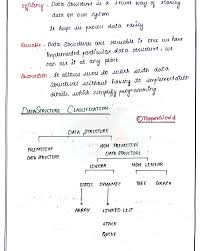 Efficiency - Data Structure is a secure way of storing
data on our system
It help us process data easily
Reusable - Data structures are reusable ie once we have
implemented particular data structure, we can
use it at any place
Abstraction - It allows user to work with data
structures without having to implementation
details which simplify programming
DATA STRUCTURE CLASSIFICATION
DATA STRUCTURE
PRIMITIVE NON PRIMITIVE
DATA STRUCTURE DATA STRUCTURE
LINEAR NON LINEAR
STATIC DYNAMIC TREE GRAPH
ARRAY LINKED LIST
STACK
QUEUE